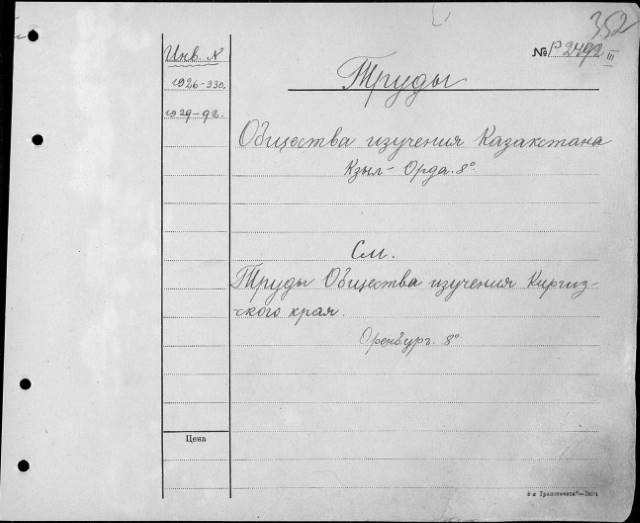 352
Инв. №
№ Р2492 III
1926-330.
Труды
1929-92.
Общества изучения Казакстана
Кзыл-Орда. 8°
См.
Труды Общества изучения Киргиз-
ского края.
Оренбург. 8°
Цена